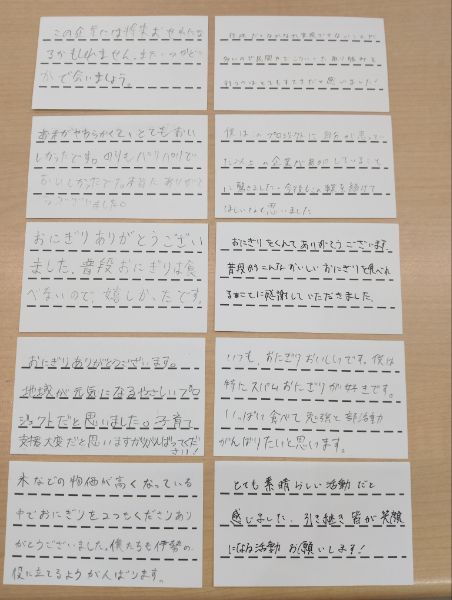 この企業には将来お世話になるかもしれません。また、いつかどこかで会いましょう。
お米がやわらかくて、とてもおいしかったです。のりもパリパリでおいしかったです。本当にありがとうございました。
おにぎりありがとうございました。普段おにぎりは食べないので、嬉しかったです。
おにぎりありがとうございます。
地域が元気になるやさしいプロジェクトだと思いました。子育て支援大変だと思いますががんばってください!
米などの物価が高くなっている中でおにぎりを2つもくださりありがとうございました。僕たちも伊勢の役に立てるようがんばります。
とてもすてきだと思いました!
僕はこのプロジェクトに自分が思っていた
の企業が参加していまして
に驚きました。今後もこの
続けてほしいなと思いました
おにぎりをくれてありがとうございます。
普段からこんなおいしいおにぎりを食べれることに感謝していただきました。
いつも、おにぎりおいしいです。僕は特にスパムおにぎりが好きです。
いっぱい食べて勉強と部活動がんばりたいと思います。
とても素晴らしい活動だと感じました。引き続き皆が笑顔になる活動お願いします!